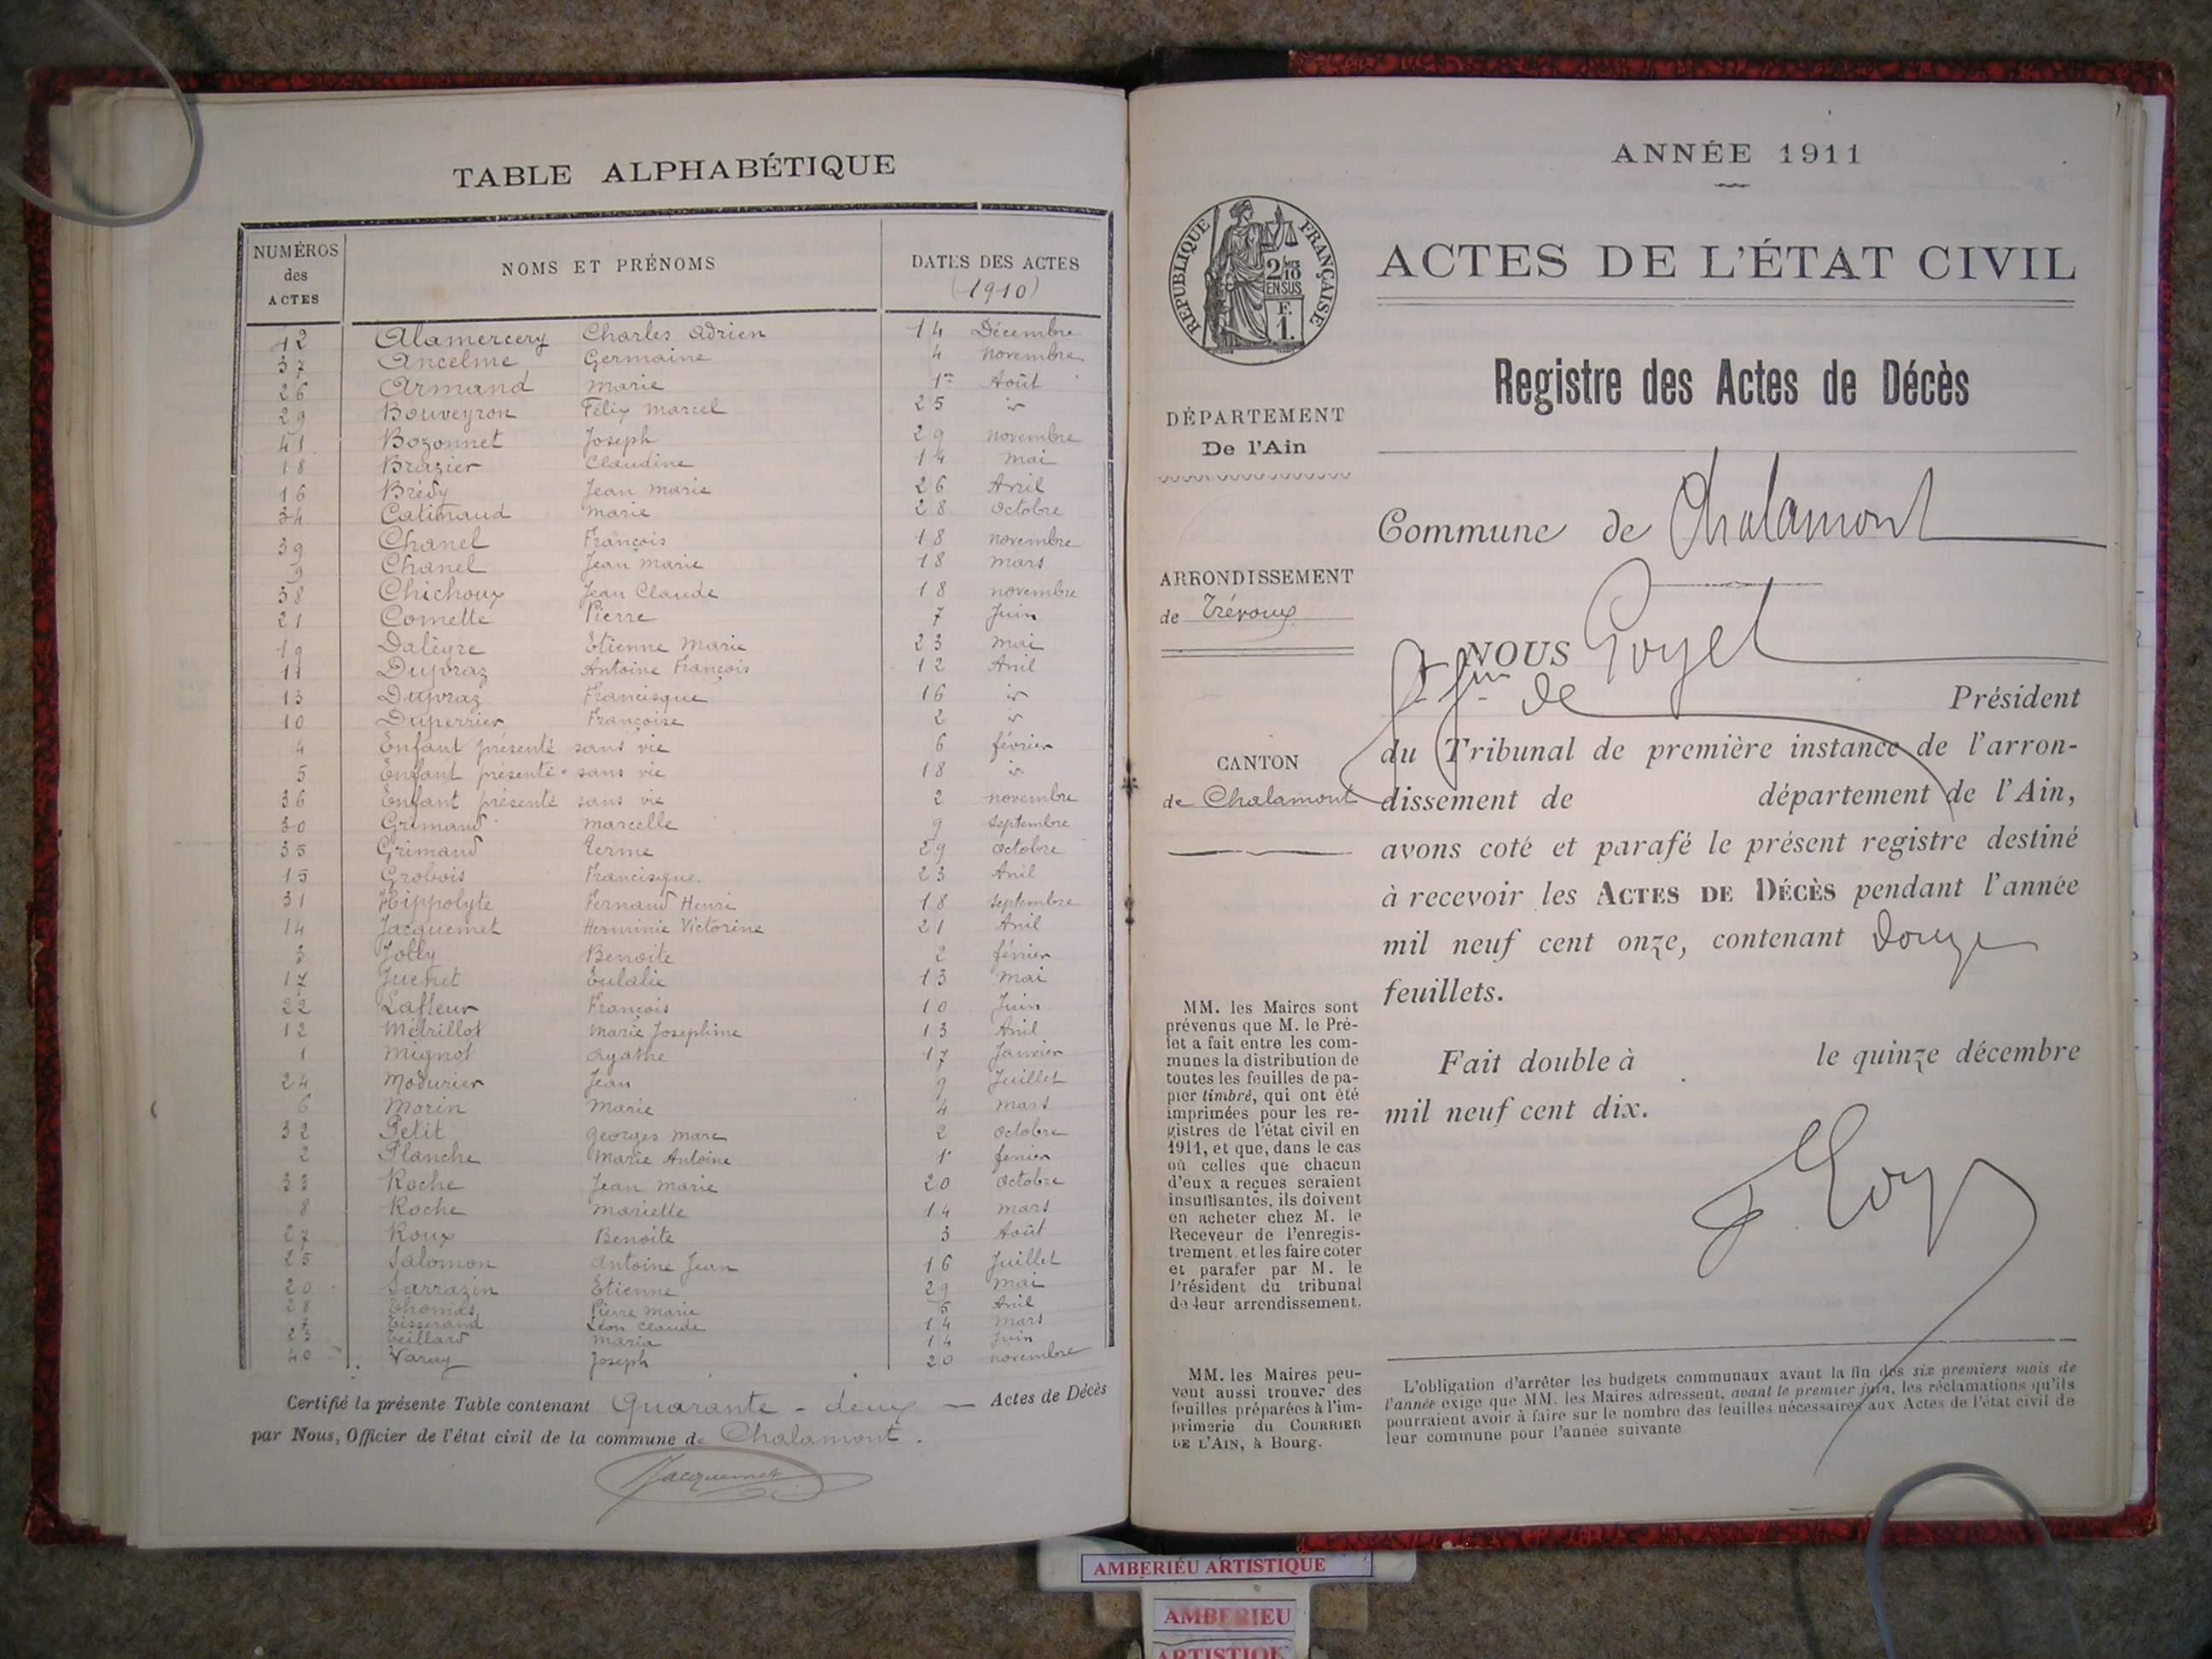 TABLE ALPHABÉTIQUE
NUMÉROS des ACTES
NOMS ET PRÉNOMS
DATES DES ACTES (1910)
42 Alamercery Charles Adrien 14 Décembre
37 Ancelme Germaine 4 novembre
26 Armand Marie 1er Août
29 Bouveyron Félix Marcel 25 id
41 Bozonnet Joseph 29 novembre
18 Brazier Claudine 14 mai
16 Brédy Jean Marie 26 Avril
34 Catimaud Marie 28 Octobre
39 Chanel François 18 novembre
9 Chanel Jean Marie 18 mars
38 Chichoux Jean Claude 18 novembre
21 Comette Pierre 7 Juin
19 Dalègre Etienne Marie 23 mai
11 Dupraz Antoine François 12 Avril
13 Dupraz Francisque 16 id
10 Duperrier Françoise 2 id
4 Enfant présenté sans vie 6 février
5 Enfant présenté sans vie 18 id
36 Enfant présenté sans vie 2 novembre
30 Grimaud Marcelle 9 septembre
35 Grimaud Terme 29 octobre
15 Grobois Francisque 23 Avril
31 Hippolyte Fernand Henri 18 septembre
14 Jacquemet Herminie Victorine 21 Avril
3 Jolly Benoite 2 février
17 Juenet Eulalie 13 mai
22 Lafleur François 10 Juin
12 Métrillot Marie Joséphine 13 Avril
1 Mignot Agathe 17 Janvier
24 Modurier Jean 9 Juillet
6 Morin Marie 4 mars
32 Petit Georges Marc 2 Octobre
2 Planche Marie Antoine 1er fevrier
33 Roche Jean Marie 20 Octobre
8 Roche Mariette 14 mars
27 Roux Benoite 3 Août
25 Salomon Antoine Jean 16 Juillet
20 Sarrazin Etienne 29 mai
28 Thomas Pierre Marie 5 Avril
7 Tisserand Léon Claude 14 mars
23 Teillard Maria 14 Juin
40 Varay Joseph 20 novembre
Certifié la présente Table contenant Quarante-deux Actes de Décès
par Nous, Officier de l'état civil de la commune de Chalamont.
Jacquemet
ANNÉE 1911
RÉPUBLIQUE FRANÇAISE
2/10 EN SUS
F. 1.
ACTES DE L'ÉTAT CIVIL
Registre des Actes de Décès
DÉPARTEMENT
De l'Ain
Commune de Chalamont
ARRONDISSEMENT
de Trévoux
NOUS Goyet
de Président
du Tribunal de première instance de l'arron-
CANTON
de Chalamont
dissement de département de l'Ain,
avons coté et parafé le présent registre destiné
à recevoir les ACTES DE DÉCÈS pendant l'année
mil neuf cent onze, contenant douze
feuillets.
Fait double à le quinze décembre
mil neuf cent dix.
MM. les Maires sont
prévenus que M. le Pré-
fet a fait entre les com-
munes la distribution de
toutes les feuilles de pa-
pier timbré, qui ont été
imprimées pour les re-
gistres de l'état civil en
1911, et que, dans le cas
où celles que chacun
d'eux a reçues seraient
insuffisantes, ils doivent
en acheter chez M. le
Receveur de l'enregis-
trement et les faire coter
et parafer par M. le
Président du tribunal
de leur arrondissement.
MM. les Maires peu-
vent aussi trouver des
feuilles préparées à l'im-
primerie du COURRIER
DE L'AIN, à Bourg.
L'obligation d'arrêter les budgets communaux avant la fin des six premiers mois de
l'année exige que MM. les Maires adressent, avant le premier juin, les réclamations qu'ils
pourraient avoir à faire sur le nombre des feuilles nécessaires aux Actes de l'état civil de
leur commune pour l'année suivante
AMBERIEU ARTISTIQUE
AMBERIEU
ARTISTIQUE